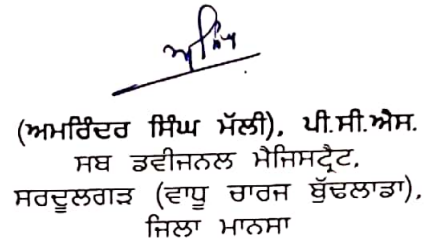 (ਅਮਰਿੰਦਰ ਸਿੰਘ ਮੱਲੀ), ਪੀ.ਸੀ.ਐਸ.
ਸਬ ਡਵੀਜਨਲ ਮੈਜਿਸਟ੍ਰੈਟ,
ਸਰਦੂਲਗੜ (ਵਾਧੂ ਚਾਰਜ ਬੁੱਢਲਾਡਾ),
ਜਿਲਾ ਮਾਨਸਾ